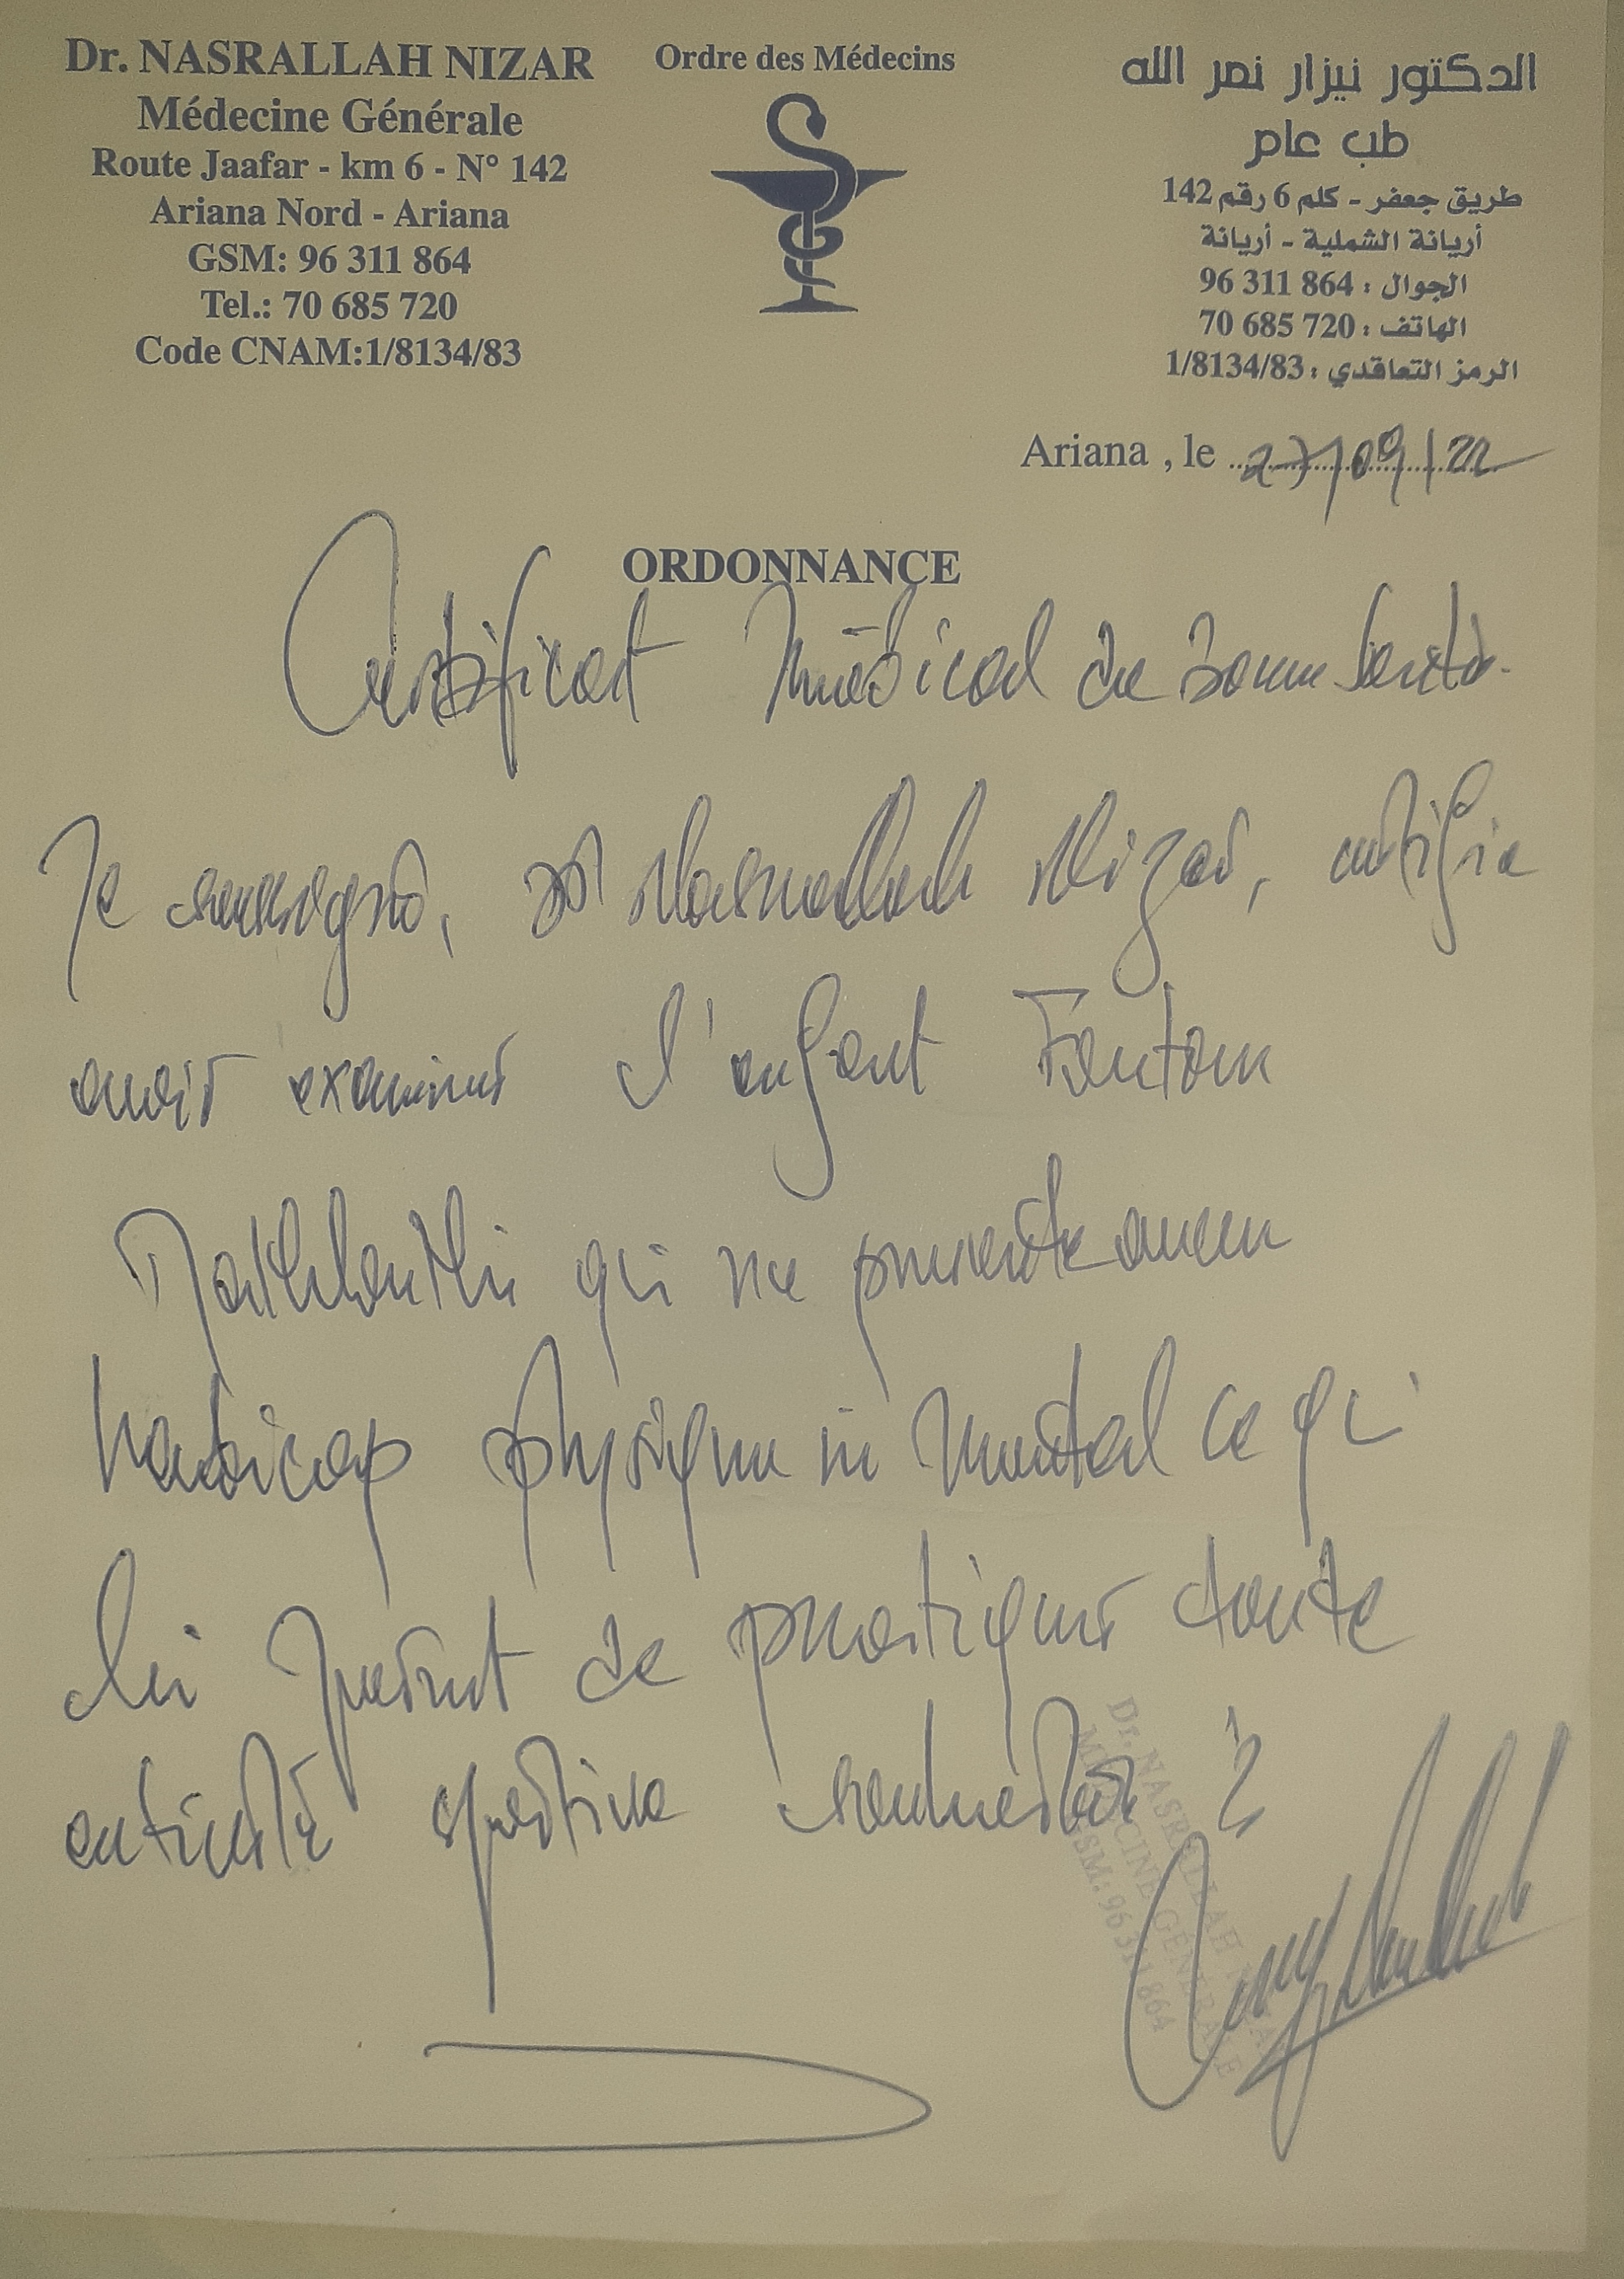 Dr. NASRALLAH NIZAR
Médecine Générale
Route Jaafar - km 6 - N° 142
Ariana Nord - Ariana
GSM: 96 311 864
Tel.: 70 685 720
Code CNAM:1/8134/83
Ordre des Médecins
الدكتور نيزار نصر الله
طب عام
طريق جعفر - كلم 6 رقم 142
أريانة الشملية - أريانة
الجوال : 96 311 864
الهاتف : 70 685 720
الرمز التعاقدي : 1/8134/83
Ariana , le 27/09/22
ORDONNANCE
Certificat Médical de Bonne Santé
Je soussigné, Dr Nasrallah Nizar, certifie
avoir examiner l'enfant
qui ne présente aucun
handicap physique ni mental ce qui
lui permet de pratiquer toute
activité sportive
Dr. NASRALLAH NIZAR
MÉDECINE GÉNÉRALE
GSM: 96 311 864